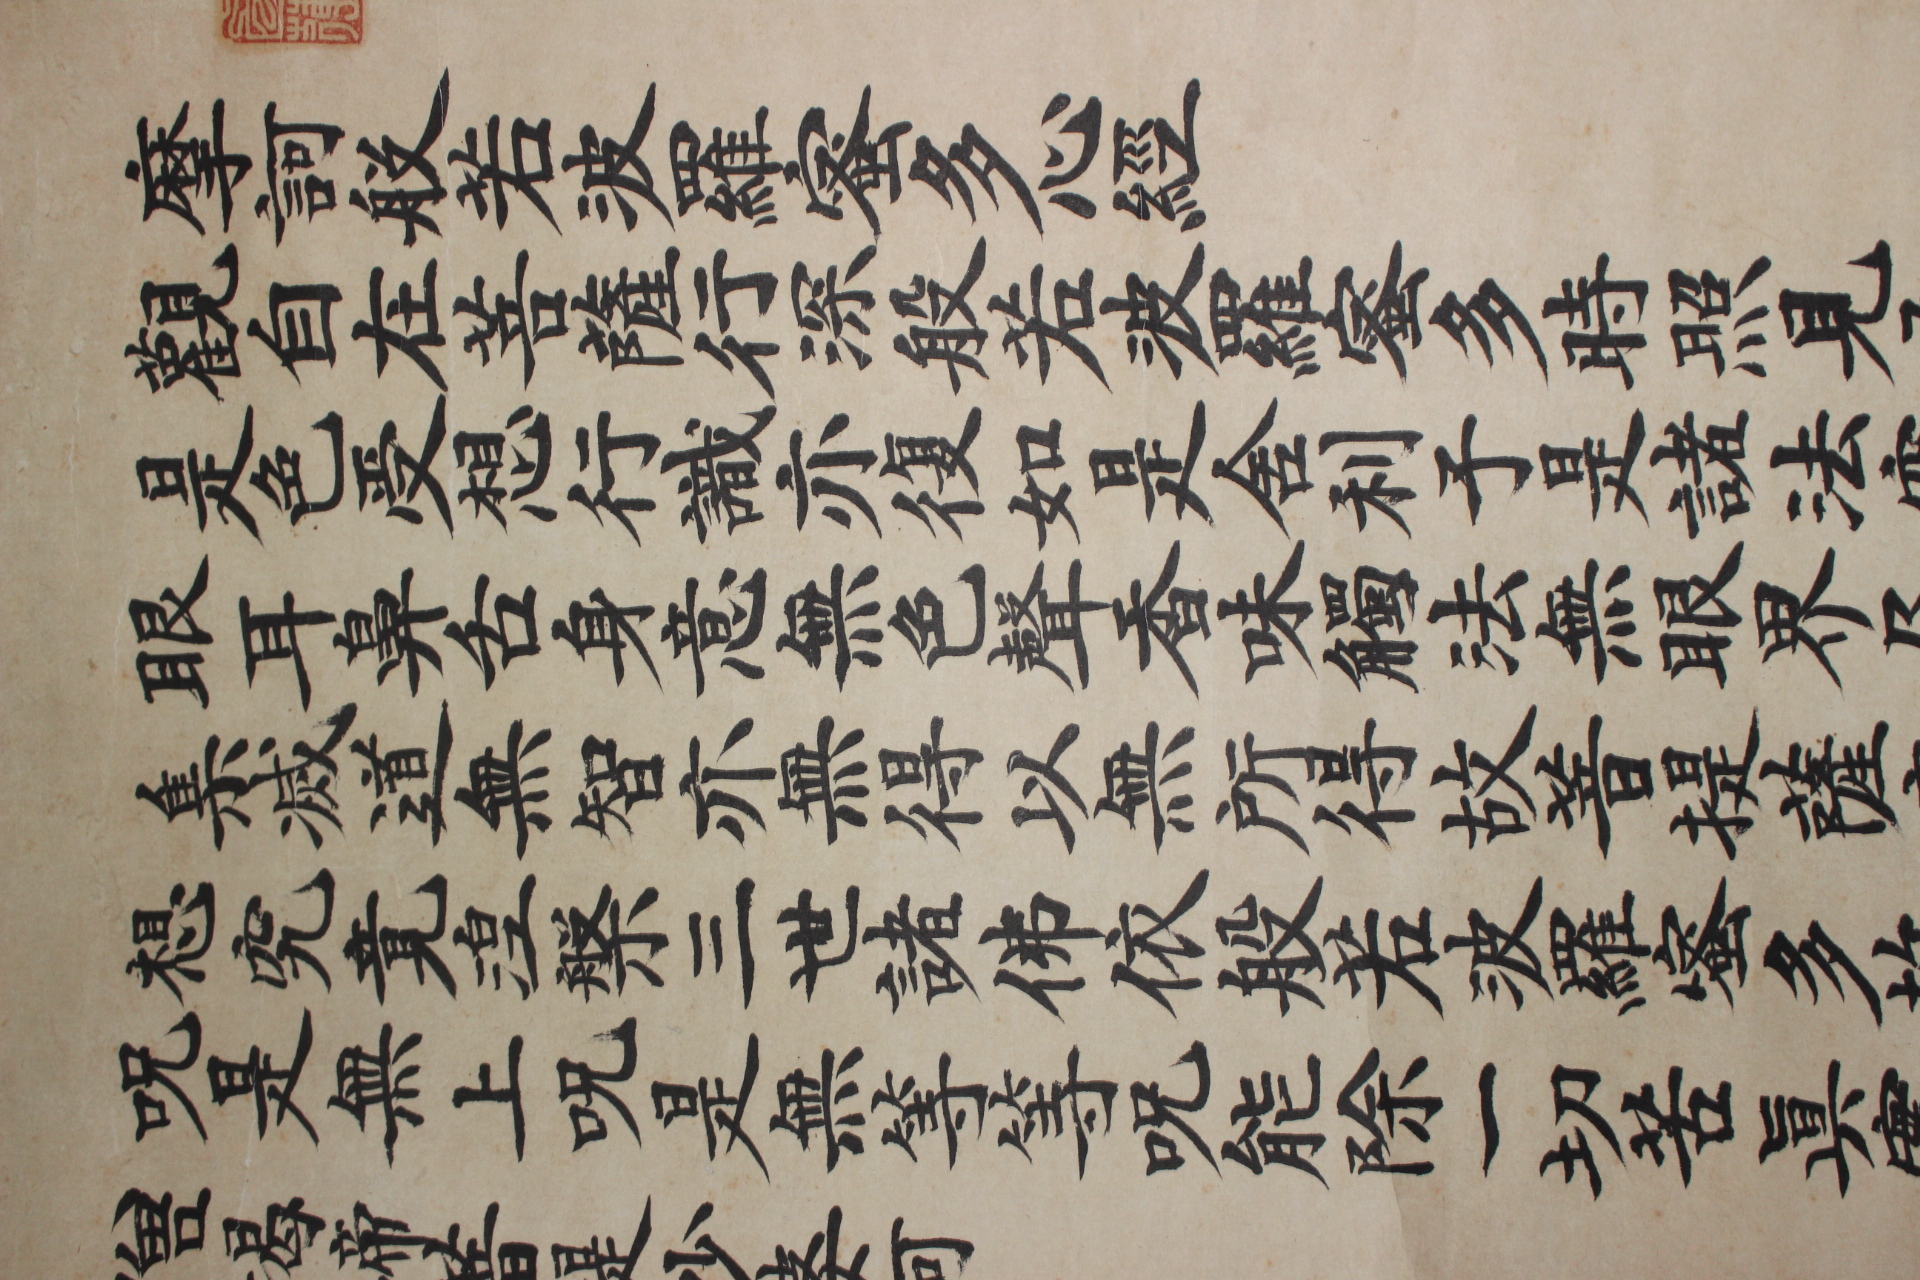 摩訶般若波羅蜜多心經
觀自在菩薩行深般若波羅蜜多時照見
是色受想行識亦復如是舍利子是諸法空
眼耳鼻舌身意無色聲香味觸法無眼界乃
集滅道無智亦無得以無所得故菩提薩
想究竟涅槃三世諸佛依般若波羅蜜多故
呪是無上呪是無等等呪能除一切苦眞實
僧揭帝菩提娑婆訶